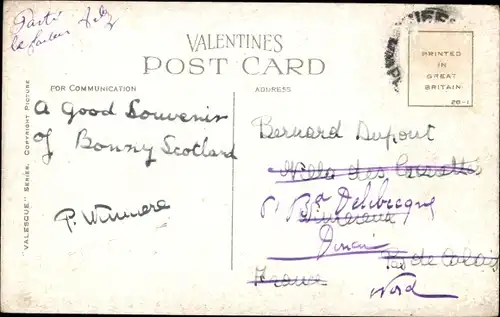 VALENTINES
POST CARD
PRINTED
IN
GREAT
BRITAIN
26-1
FOR COMMUNICATION
ADDRESS
"VALESQUE" SERIES. COPYRIGHT PICTURE
A Good Souvenir
of Bonny Scotland
P.
Bernard Dupont
Villa des
Bd Delebecque
Wimereux
Douai
Pas de Calais
France
Nord